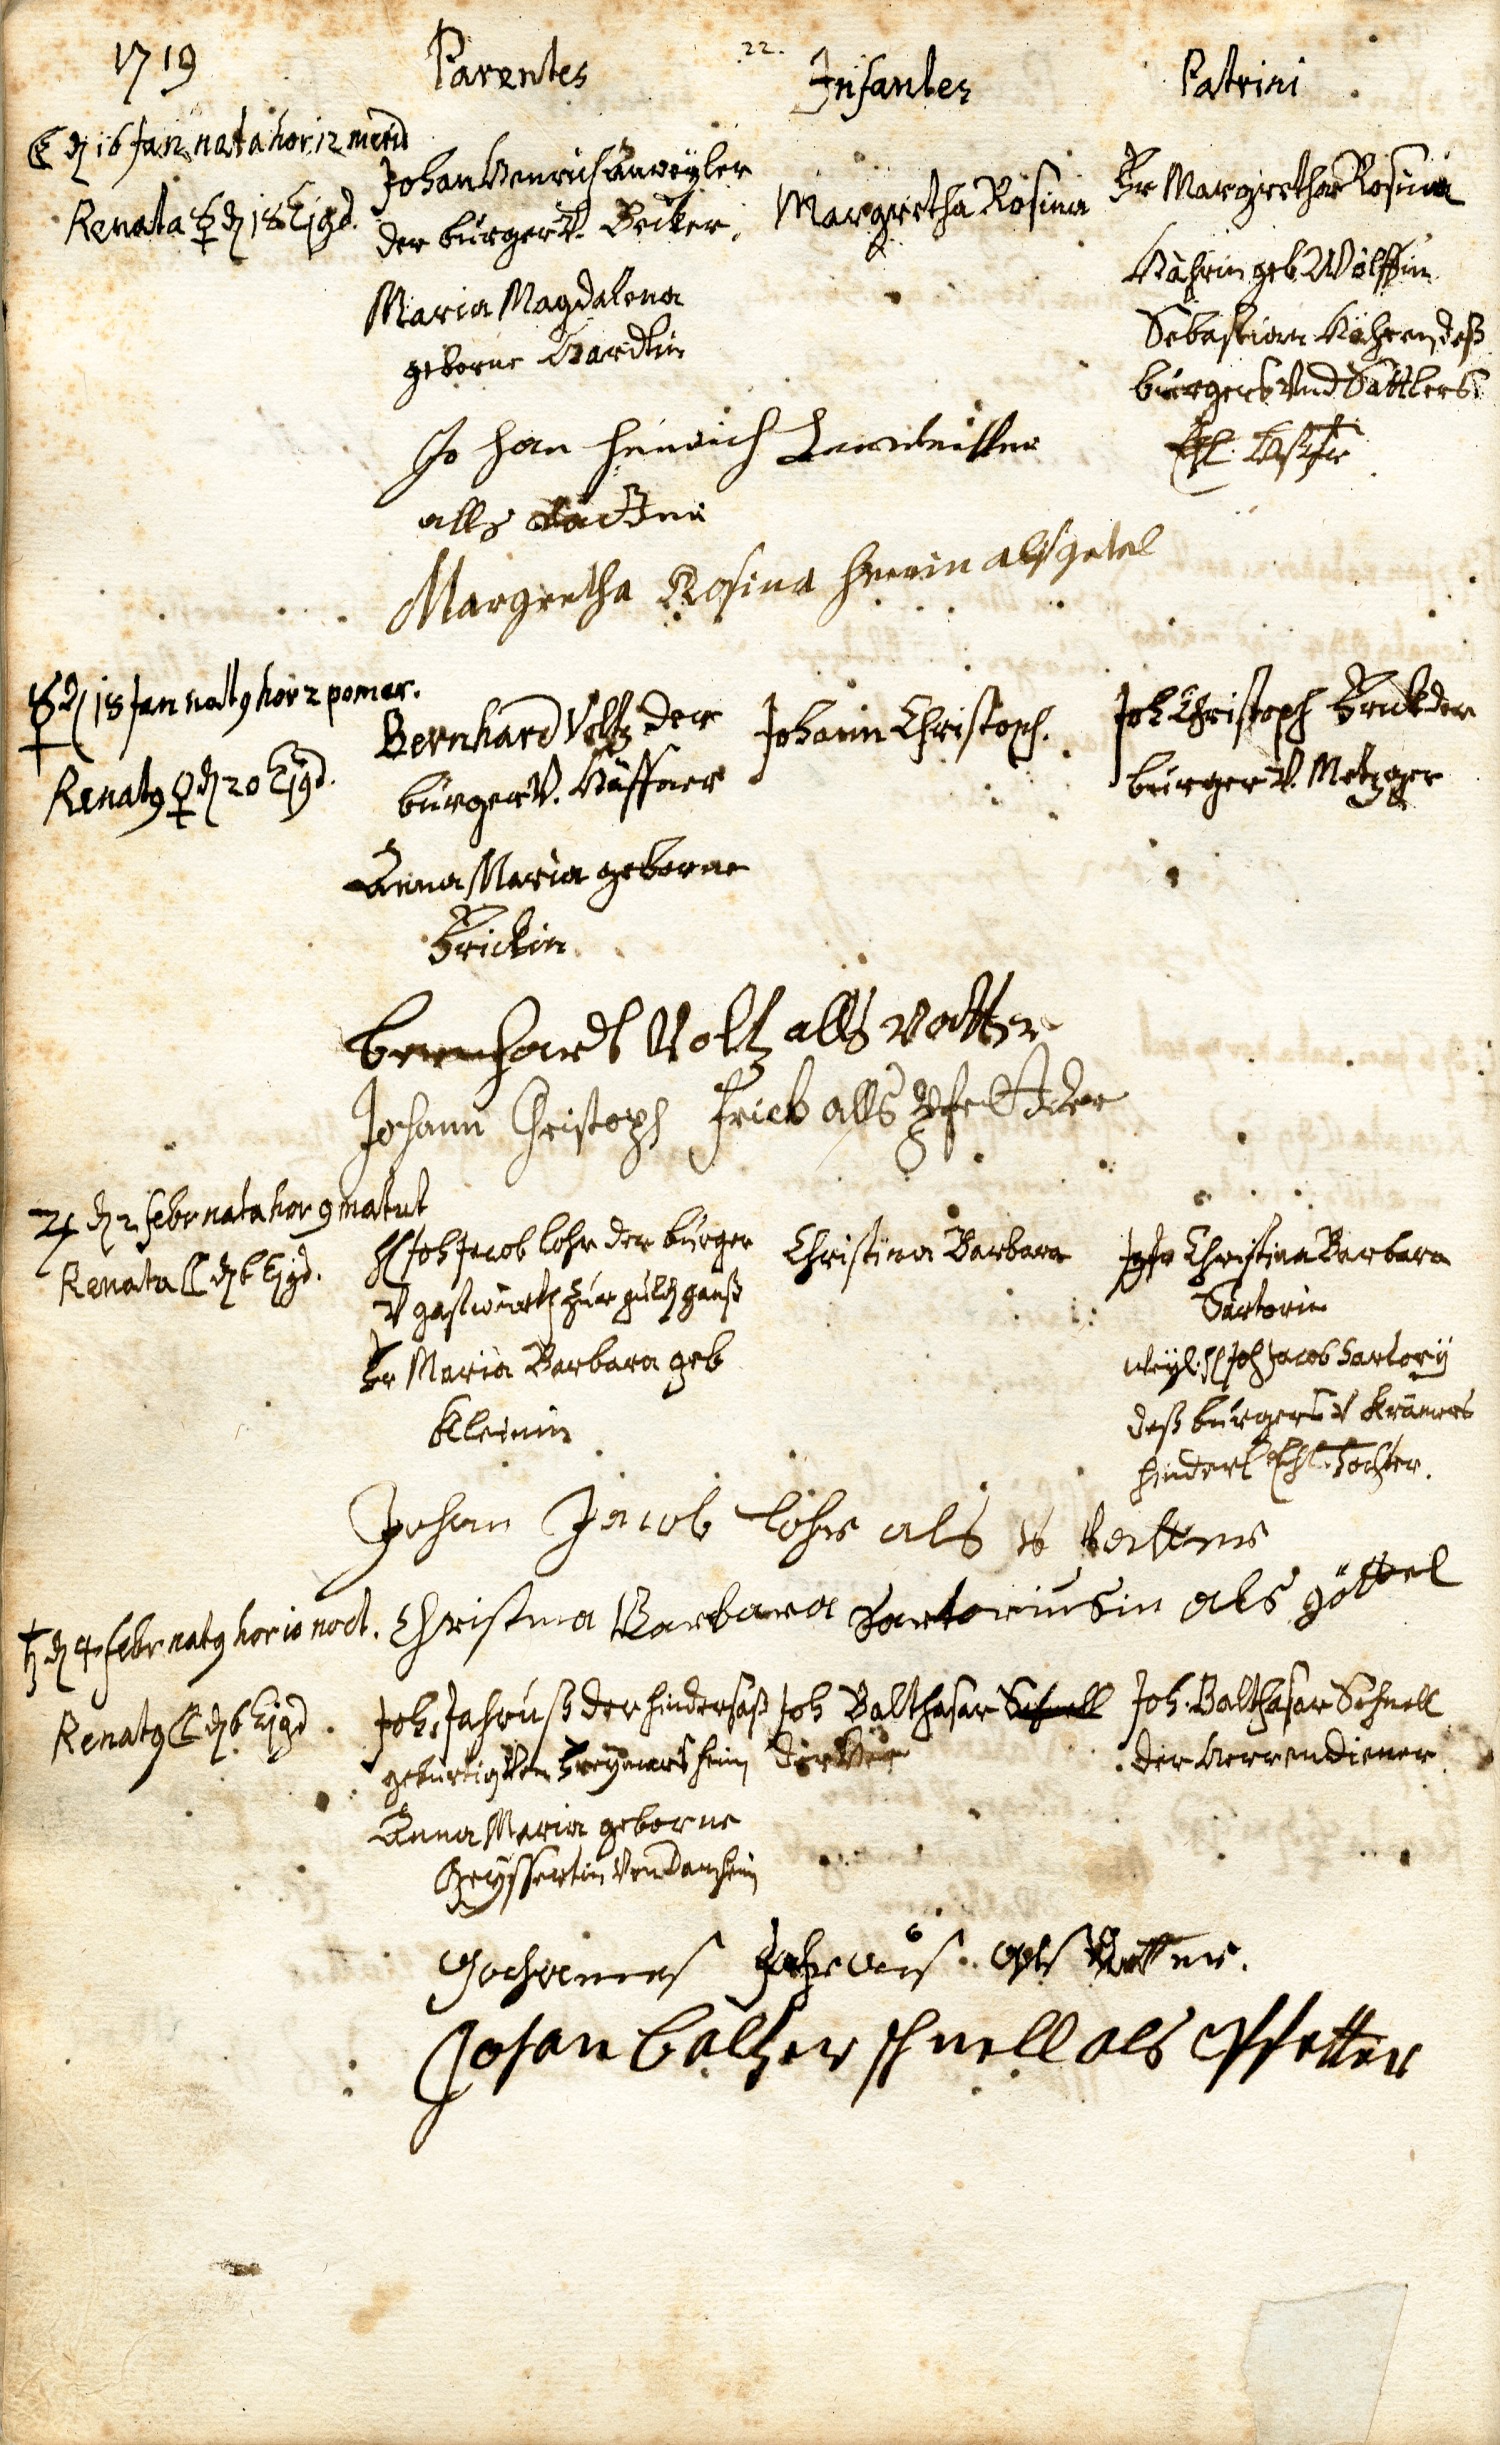 22.
1719 Parentes Infantes Patrini
☾ d 16 Jan nata hor. 12 merid
Renata ☿ d 18 Ejgd.
Johan Henrich Anweyler
der burger v. Becker.
Maria Magdalena
geborne Hardtin
Margretha Rosina
Fr Margretha Rosina
geb. Wölffin
Sebastian deß
burgers und Sattlers
Ehl. Haßfr
Johan Heinrich
alls
Margretha Rosina als getel
☿ d 18 Jan natg hor 2 pomer.
Renatg ♀ d 20 Ejgd.
Bernhard Voltz der
burger v. Häffner
Anna Maria geborne
Frickin
Johann Christoph.
Joh Christoph Frick der
burger v. Metzger
bernhardt Voltz alls vatter
Johann Christoph Frick alls Pfetter
♃ d 2 febr nata hor 9 matut
Renata ☾ d 6 Ejgd.
H Joh Jacob Lohr der burger
v gastwürth zur güld ganß
Fr Maria Barbara geb
Kleinin
Christina Barbara
Jgfr Christina Barbara
Sartorin
weyl. H Joh Jacob Sartory
deß burgers v Krämers
hinderl Ehl. Tochter.
Johan Jacob Löhr als Vatter
Christina Barbara Sartoriusin als göttel
♄ d 4 febr natg hor 10 noct.
Renatg ☾ d 6 Ejgd.
Joh. Jahrauß der hindersaß
gebürtig von
Anna Maria geborne
von Damheim
Joh Balthasar Schnell
der
Joh. Balthasar Schnell
der Herrendiener
Jochannes Jahraus als Vatter.
Johan baltzer schnell als Pfetter